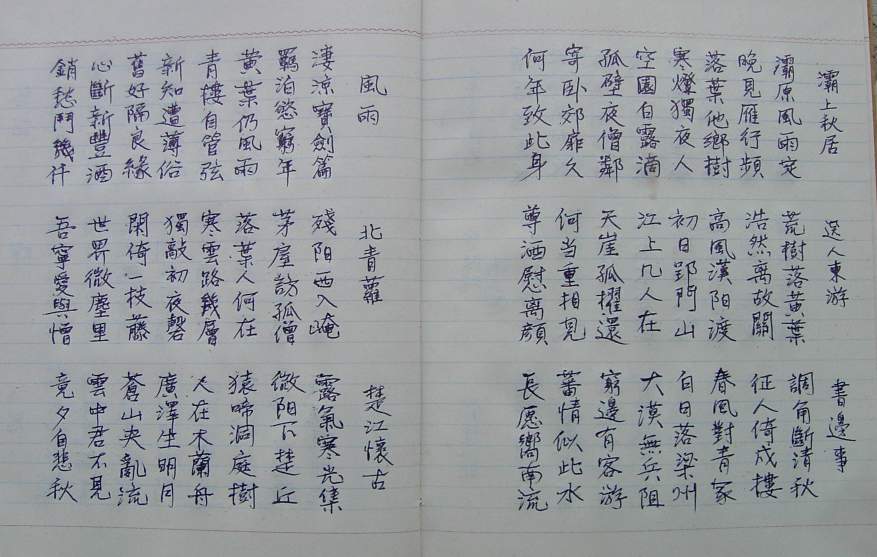 灞上秋居
灞原風雨定
晚見雁行頻
落葉他鄉樹
寒燈獨夜人
空園白露滴
孤壁夜僧鄰
寄卧郊扉久
何年致此身
送人東游
荒樹落黃葉
浩然离故關
高風漢陽渡
初日郢門山
江上几人在
天崖孤櫂還
何当重相見
尊酒慰离顏
書邊事
調角斷清秋
征人倚戍樓
春風對青冢
白日落梁州
大漠無兵阻
窮邊有客游
蕃情似此水
長愿嚮南流
風雨
淒涼寶劍篇
羁泊慾窮年
黃葉仍風雨
青樓自管弦
新知遭薄俗
舊好隔良緣
心斷新豐酒
銷愁鬥幾仟
北青蘿
殘阳西入崦
茅屋訪孤僧
落葉人何在
寒雲路幾層
獨敲初夜磬
閑倚一枝藤
世界微塵里
吾寧愛與憎
楚江懷古
露氣寒光集
微阳下楚丘
猿啼洞庭樹
人在木蘭舟
廣澤生明月
蒼山夾亂流
雲中君不見
竟夕自悲秋